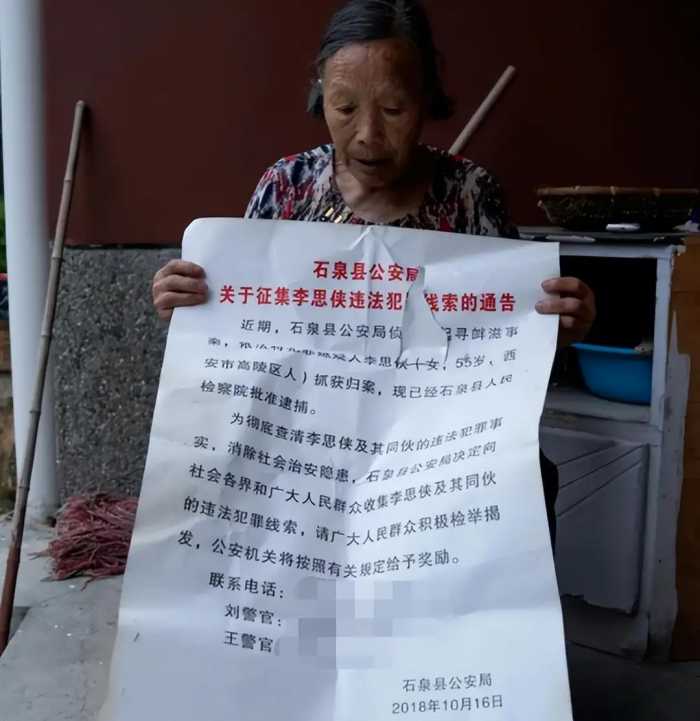 石泉县公安
关于征集李思侠违法犯 线索的通告
近期，石泉县公安局侦 起寻衅滋事
案，依法将犯罪嫌疑人李思侠（女，55岁、西
安市高陵区人）抓获归案，现已经石泉县人民
检察院批准逮捕。
为彻底查清李思侠及其同伙的违法犯罪事
实，消除社会治安隐患，石泉县公安局决定向
社会各界和广大人民群众收集李思侠及其同伙
的违法犯罪线索，请广大人民群众积极检举揭
发，公安机关将按照有关规定给予奖励。
联系电话：
刘警官：
王警官
石泉县公安局
2018年10月16日